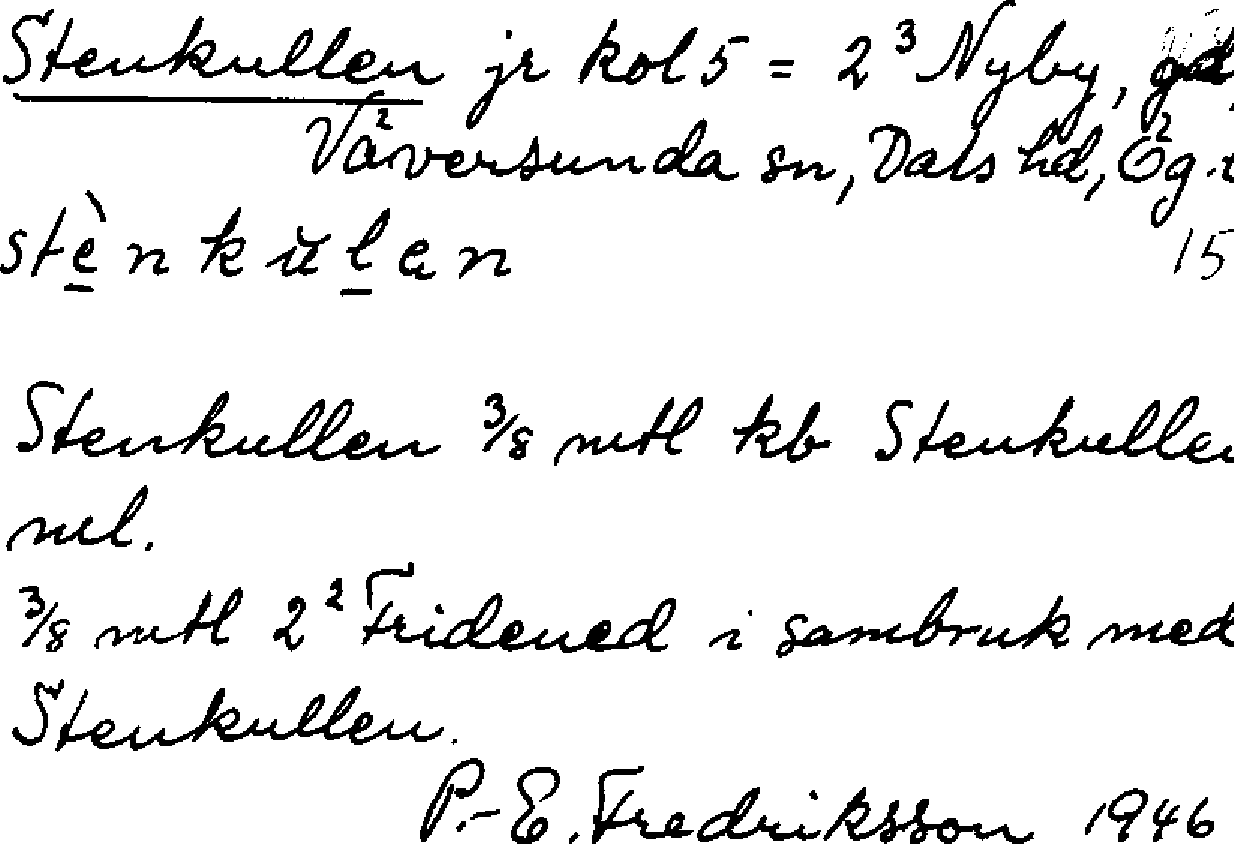 Stenkullen jr kol 5 = 2³ Nyby, gd,
Väversunda sn, Dals hd, Ög.
stè̠nkŭl̠an
15
Stenkullen 3/8 mtl kb Stenkullen
ml.
3/8 mtl 2² Fridened i sambruk med
Stenkullen.
P.-E. Fredriksson 1946